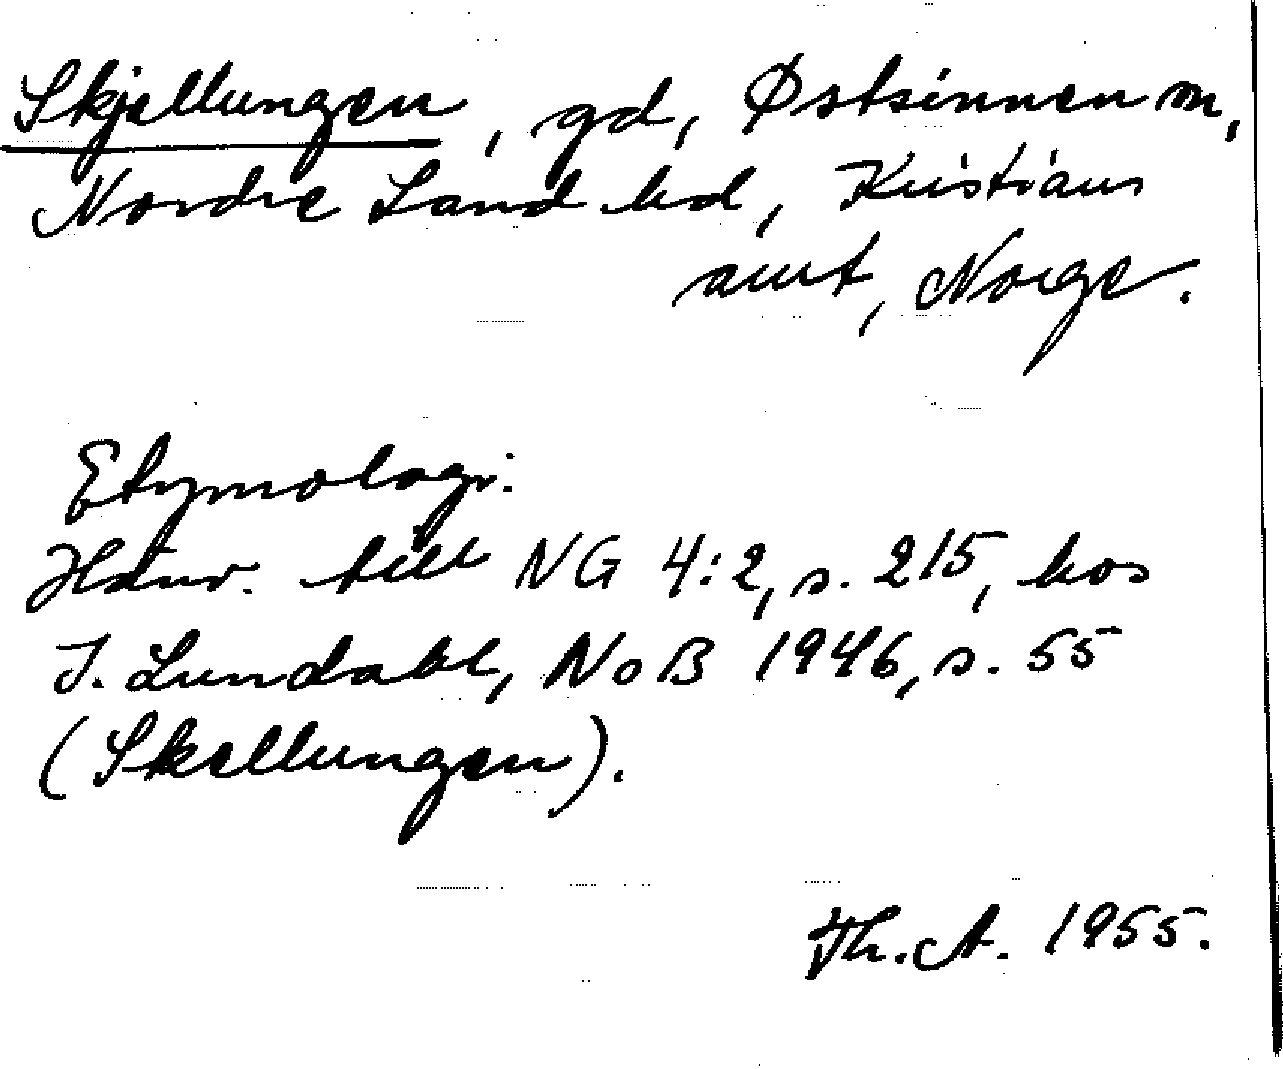 Skjellungen, gd, Østsinnen m,
Nordre Land hd, Kristians
amt, Norge.
Etymologi:
Hänv. till NG 4:2, s. 215, hos
I. Lundahl, NoB 1946, s. 55
(Skellungen).
Th. A. 1955.